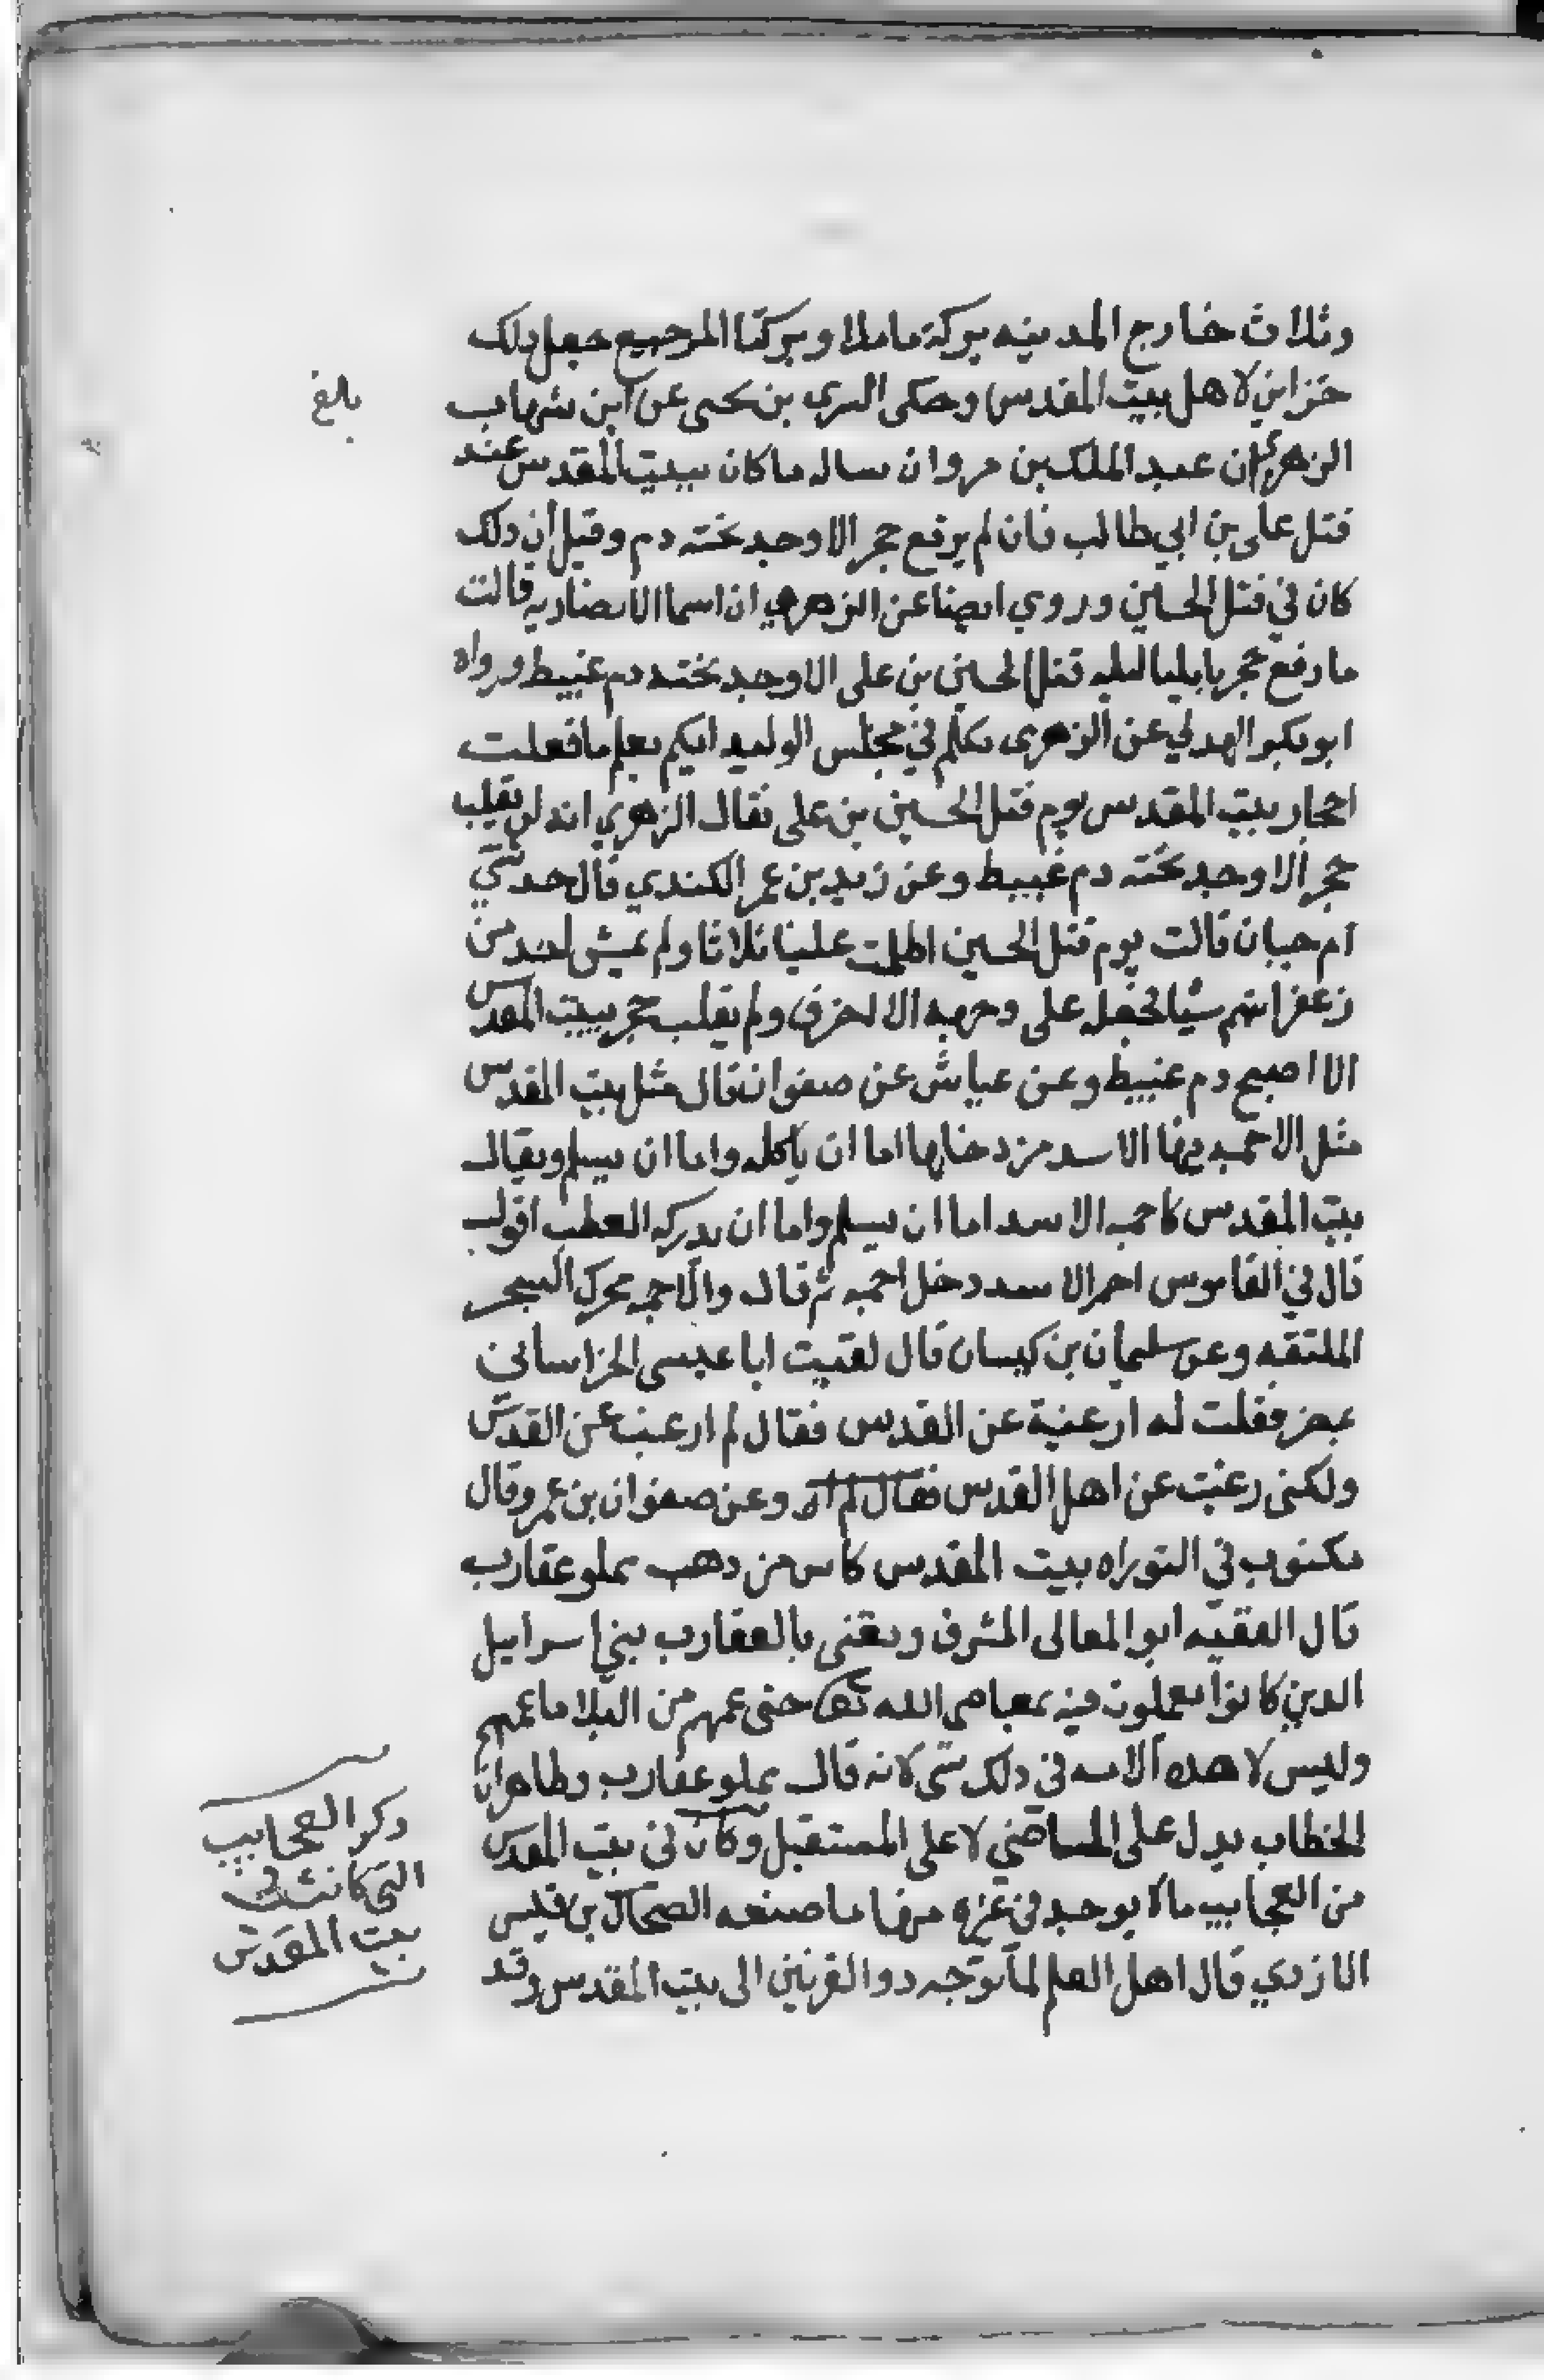 وثلاث خارج المدينه بركة ماملا وبركتا المرجيع جعل ذلك
خزاين لاهل بيت المقدس وحكى السري بن يحيى عن ابن شهاب
الزهري ان عبد الملك بن مروان ساله ما كان ببيت المقدس عند
قتل على بن ابي طالب فان لم يرفع حجر الا وجد تحته دم وقيل أن ذلك
كان في قتل الحسين وروي ايضا عن الزهري ان اسما الانصاريه قالت
ما رفع حجر بايليا ليليه قتل الحسين بن على الا وجد تحته دم عبيط ورواه
ابو بكر الهدلي عن الزهرى تكلم في مجلس الوليد ايكم يعلم ما فعلت
احجار بيت المقدس يوم قتل الحسين بن على فقال الزهري انه لن يقلب
حجر الا وجد تحته دم عبيط وعن زيد بن عمر الكندي قال حدثتني
ام حبان قالت يوم قتل الحسين اظلمت علينا ثلاثا ولم يمس احد من
زعفرانهم شيا فجعله على وجهه الا احترق ولم يقلب حجر ببيت المقدس
الا اصبح دم عبيط وعن عياش عن صفوان قال مثل بيت المقدس
مثل الاجمه فيها الاسد من دخلها اما ان ياكله واما ان يسلم ويقال
بيت المقدس كاجمه الاسد اما ان يسلم واما ان يدركه العطب اقول
قال في القاموس اجم الاسد دخل اجمه ثم قال والاجمه محرك الشجر
الملتفه وعن سليمان بن كيسان قال لقيت ابا عيسى الخراساني
فقلت له ارغبة عن القدس فقال لم ارغب عن القدس
ولكنى رغبت عن اهل القدس فقال لم اه وعن صفوان بن عمرو قال
مكتوب في التوراه بيت المقدس كاس من ذهب مملو عقارب
قال الفقيه ابو المعالى المشرف ويعنى بالعقارب بني إسرايل
الدين كانوا يعملون فيه بمعاصي الله تعالى حتى عمهم من البلا ما عمهم
وليس لاهده الامه في ذلك شى لانه قال مملو عقارب وظاهر ان
الخطاب يدل على الماضي لا على المستقبل وكان في بيت المقدس
من العجايب ما لا يوجد في غيره منها ما صنعه الضحاك بن قيس
الازدي قال اهل العلم لما توجه دوا القرنين الى بيت المقدس وقد
بالغ
ذكر العجايب
التي كانت في
بيت المقدس